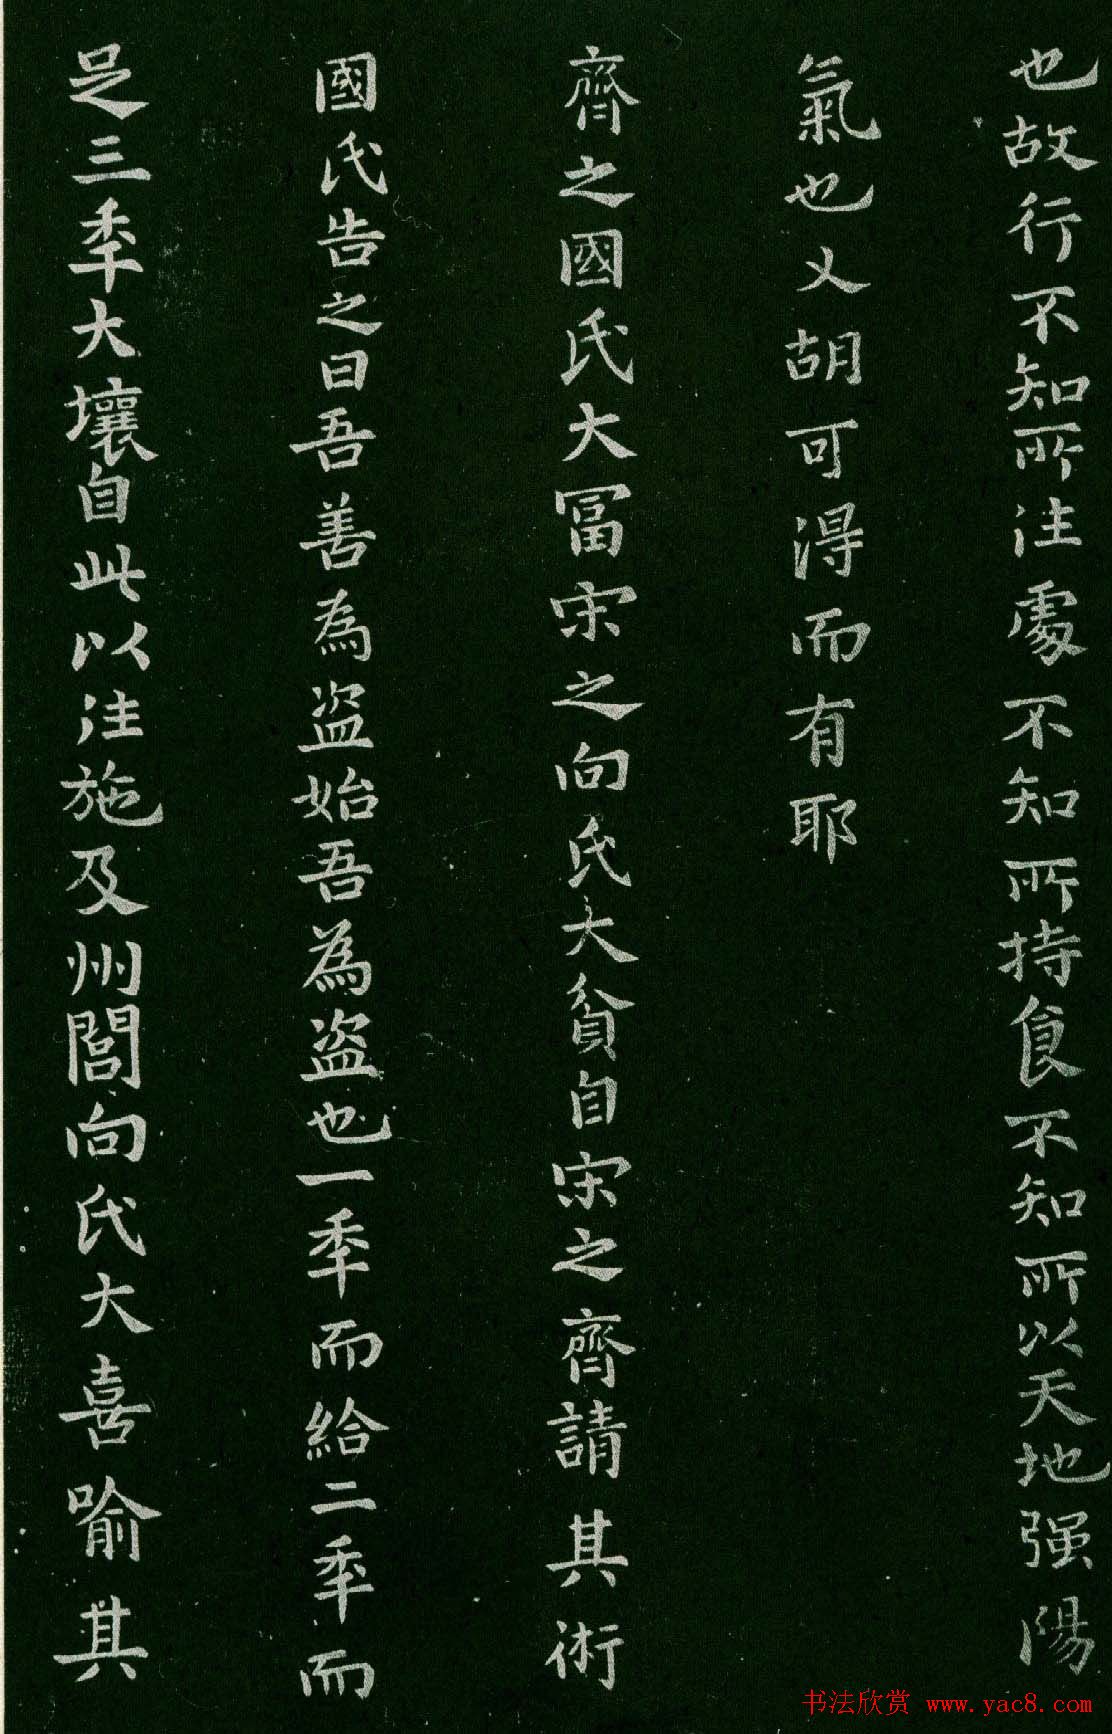 也故行不知所往處不知所持食不知所以天地强陽
氣也又胡可得而有耶
齊之國氏大冨宋之向氏大貧自宋之齊請其術
國氏告之曰吾善為盜始吾為盜也一秊而給二秊而
足三秊大壤自此以往施及州閭向氏大喜喻其
书法欣赏 www.yac8.com